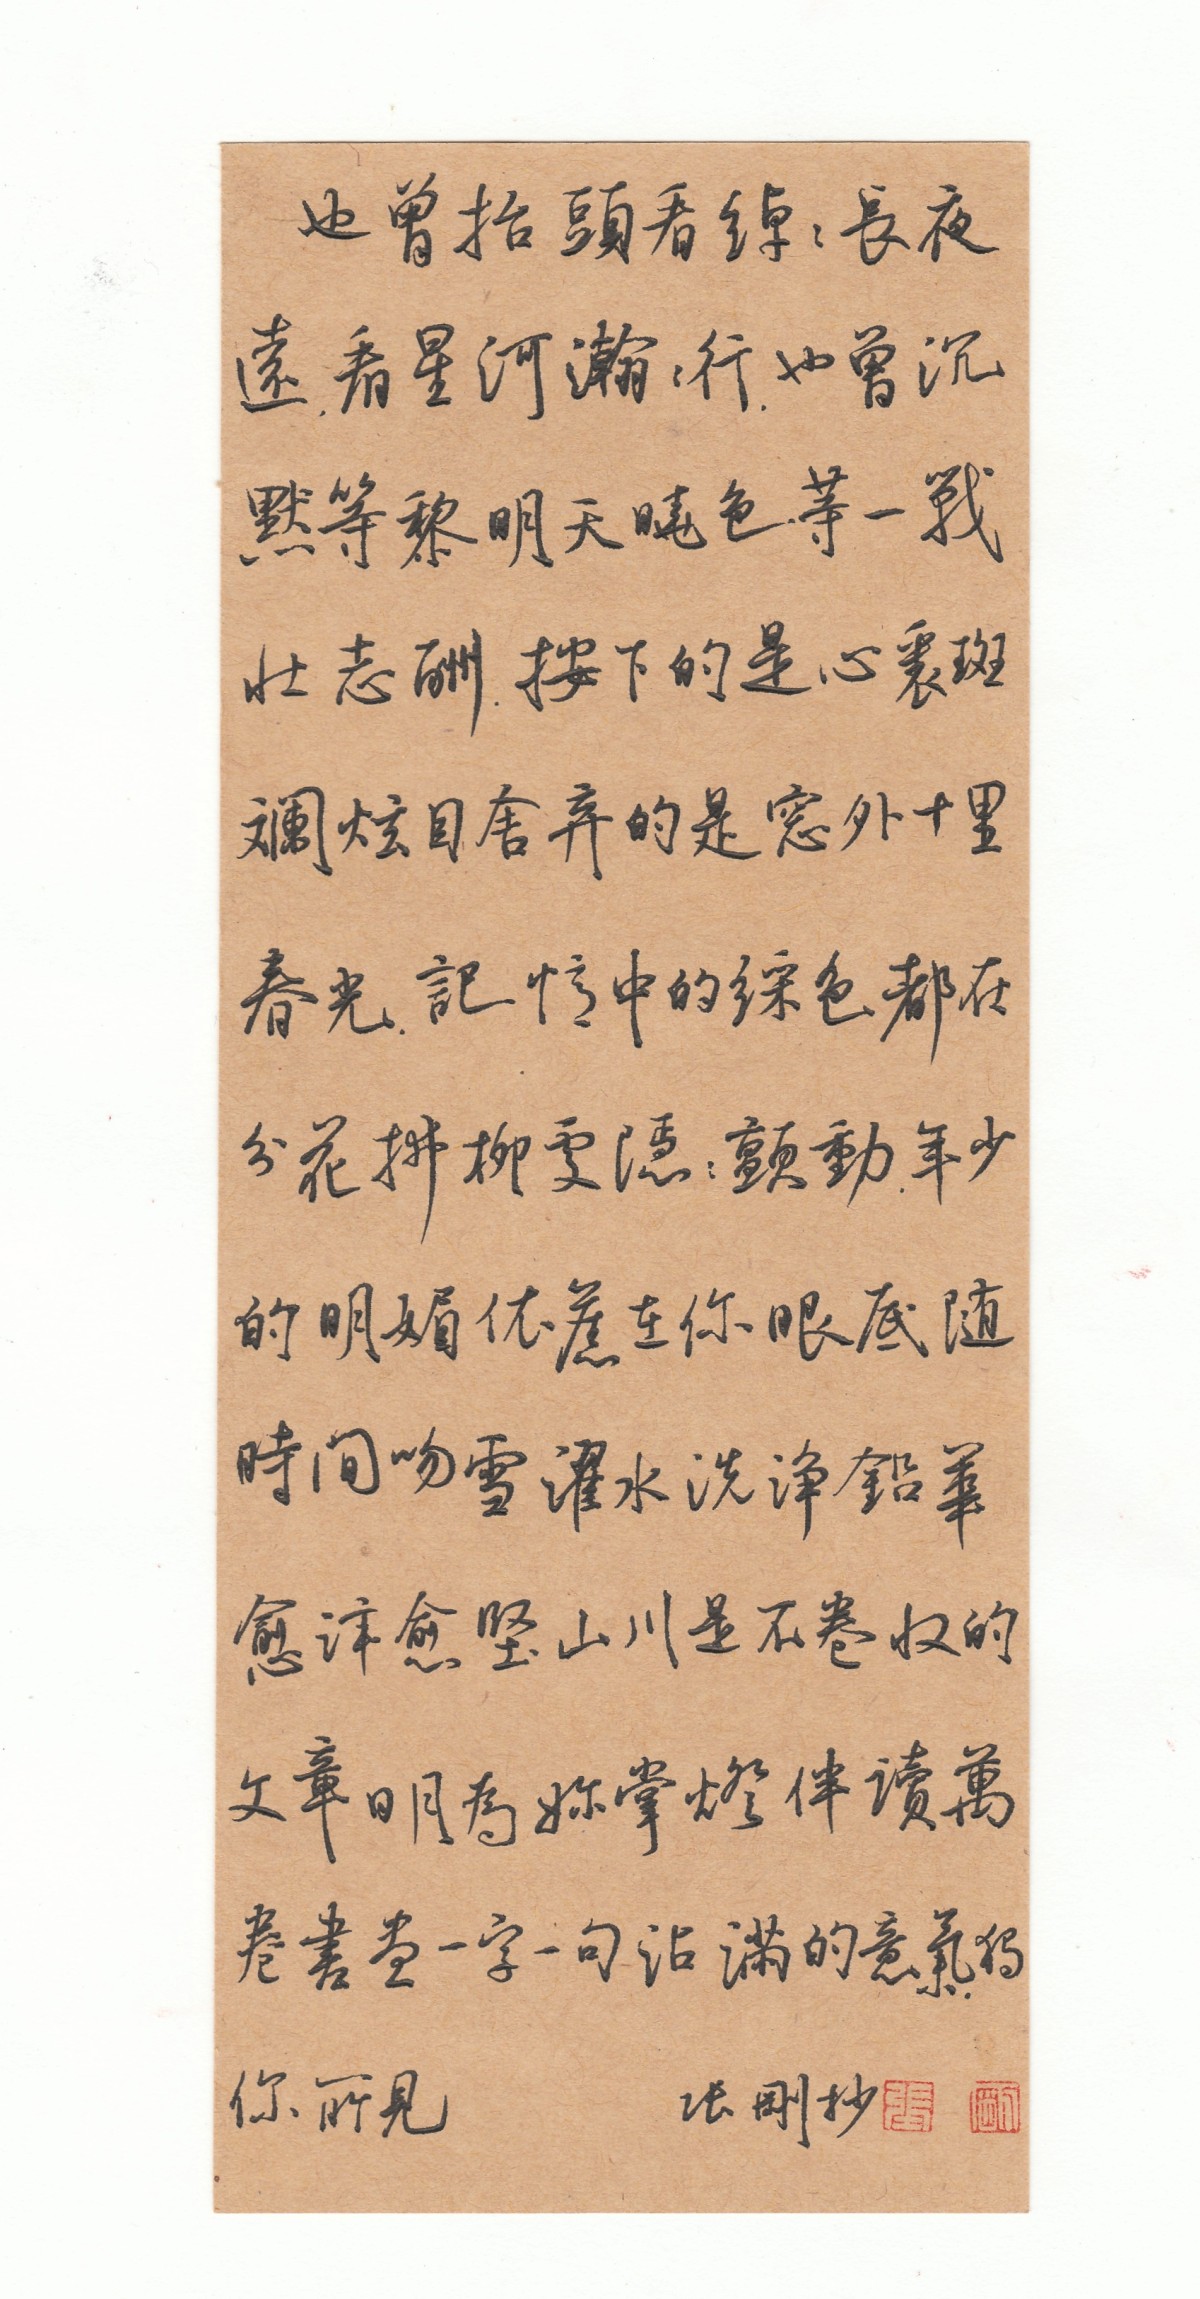 也曾抬頭看綽々長夜
遠.看星河瀚々行.也曾沉
默等黎明天曉色.等一戰
壯志酬.按下的是心裏斑
斕炫目舍弃的是窓外十里
春光.記憶中的綵色都在
分花拂柳雯隱々顫動.年少
的明媚依舊在你眼底随
時间吻雪濯水洗浄鉛華
愈溁愈堅山川是不卷收的
文章明為妳掌燈伴讀萬
卷書盡一字一句沾满的意氣.獨
你所見 张剛抄